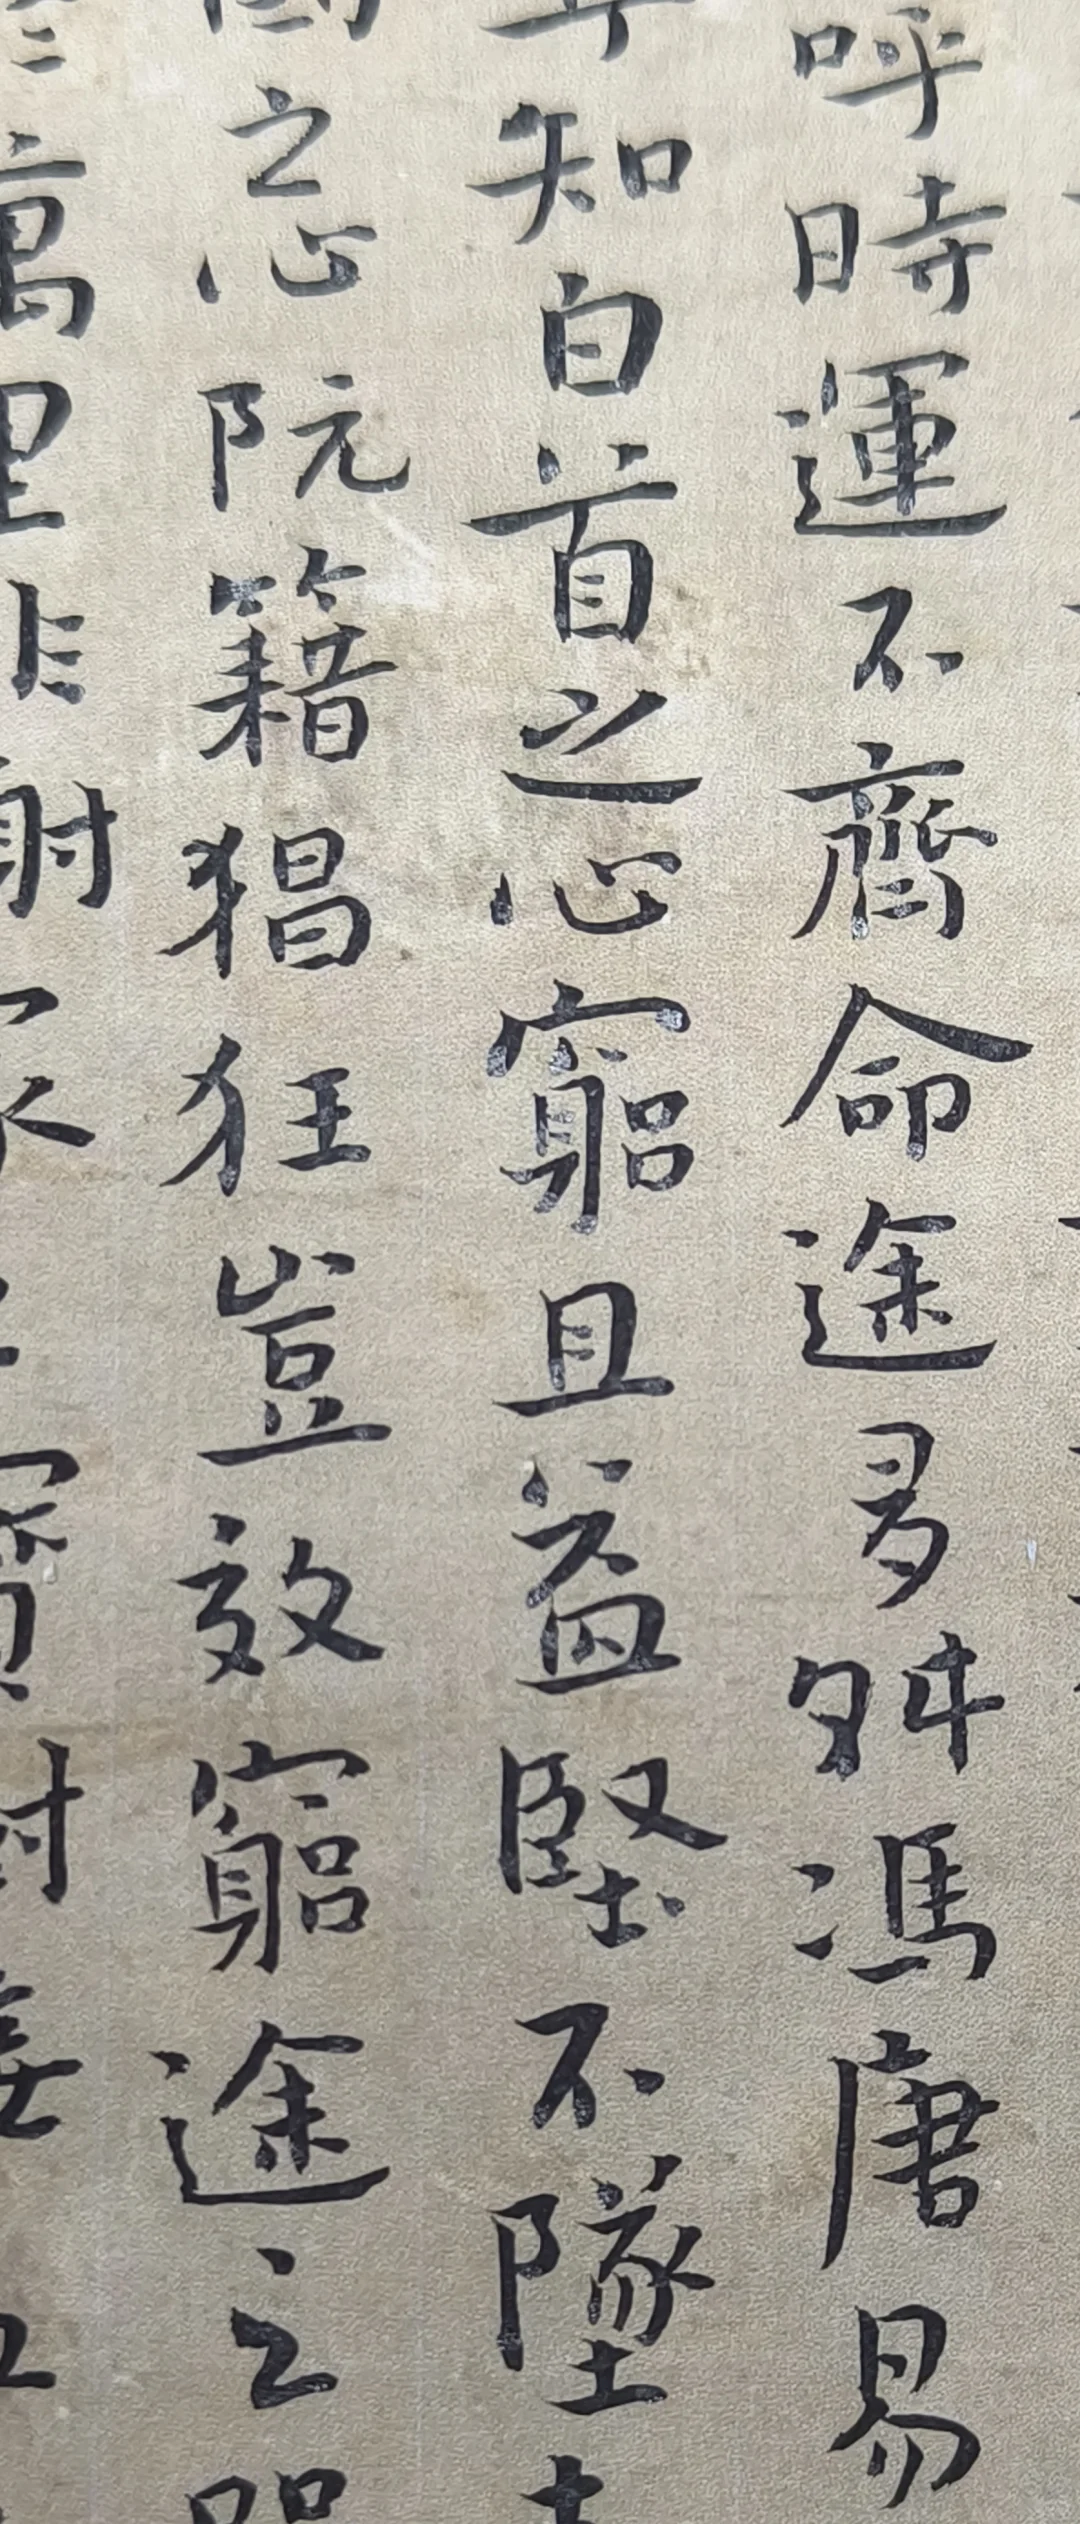 呼時運不齊命途多舛馮唐易
知白首之心窮且益堅不墜
之心阮籍猖狂豈效窮途之
萬里非